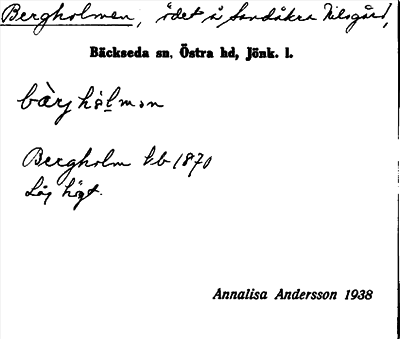 Bergholmen, ödet å Sandåkra Nilsgård,
Bäckseda sn, Östra hd, Jönk. l.
bàrjhòlmən
Bergholm hb 1870
Låg högt.
Annalisa Andersson 1938